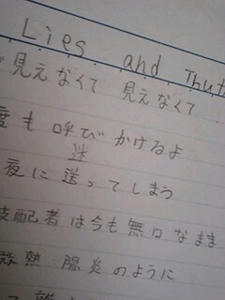 Lies and Thut
見えなくて 見えなくて
度も呼びかけるよ
迷
夜に送ってしまう
支配者は今も無口なまま
熱 腸炎のように